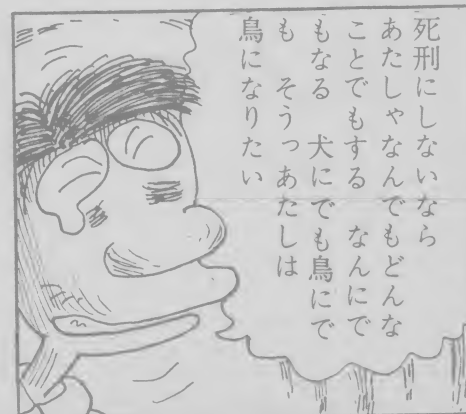 死刑にしないなら
あたしゃなんでもどんな
ことでもする　なんにで
もなる　犬にでも鳥にで
も　そうっあたしは
鳥になりたい